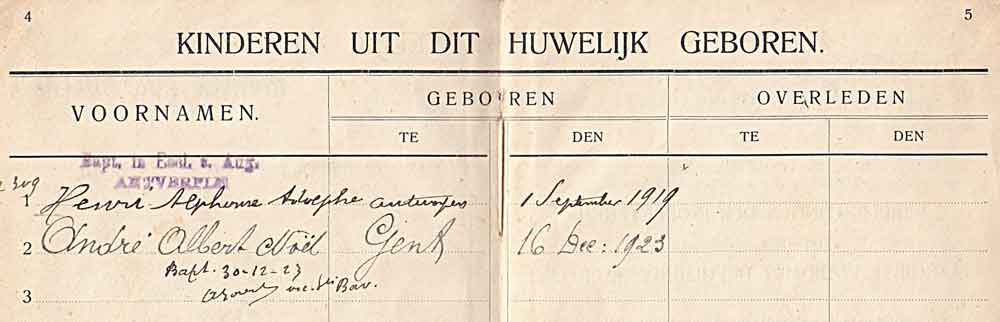 4
5
KINDEREN UIT DIT HUWELIJK GEBOREN.
VOORNAMEN.
GEBOREN
OVERLEDEN
TE
DEN
TE
DEN
Bapt. in Eccl. s. Aug.
ANTVERPIÆ
1 Henri Alphonse Adolphe antwerpen 1 September 1919
2 André Albert Noël Gent 16 Dec: 1923
Bapt. 30-12-23
Bav.
3